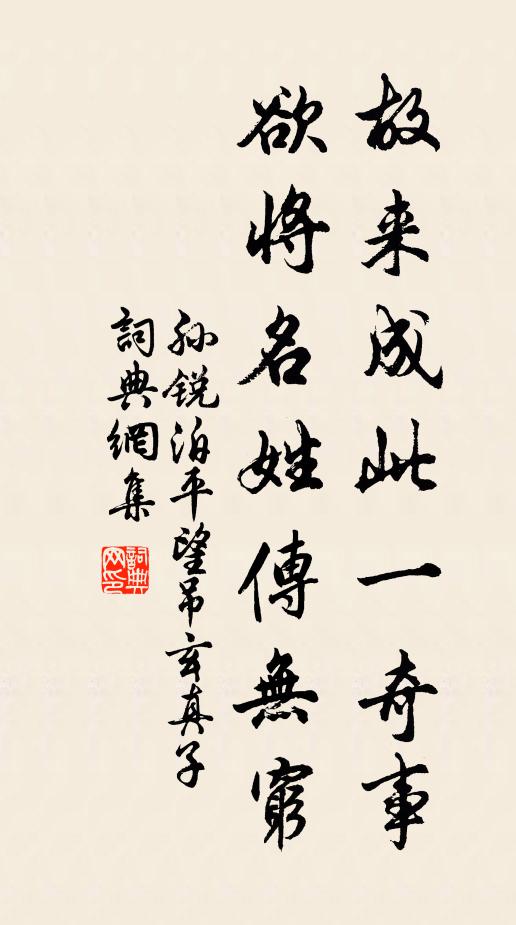 故来成此一奇事
欲将名姓傳無窮
孙锐泊平望吊玄真子
詞典網集
詞典网印